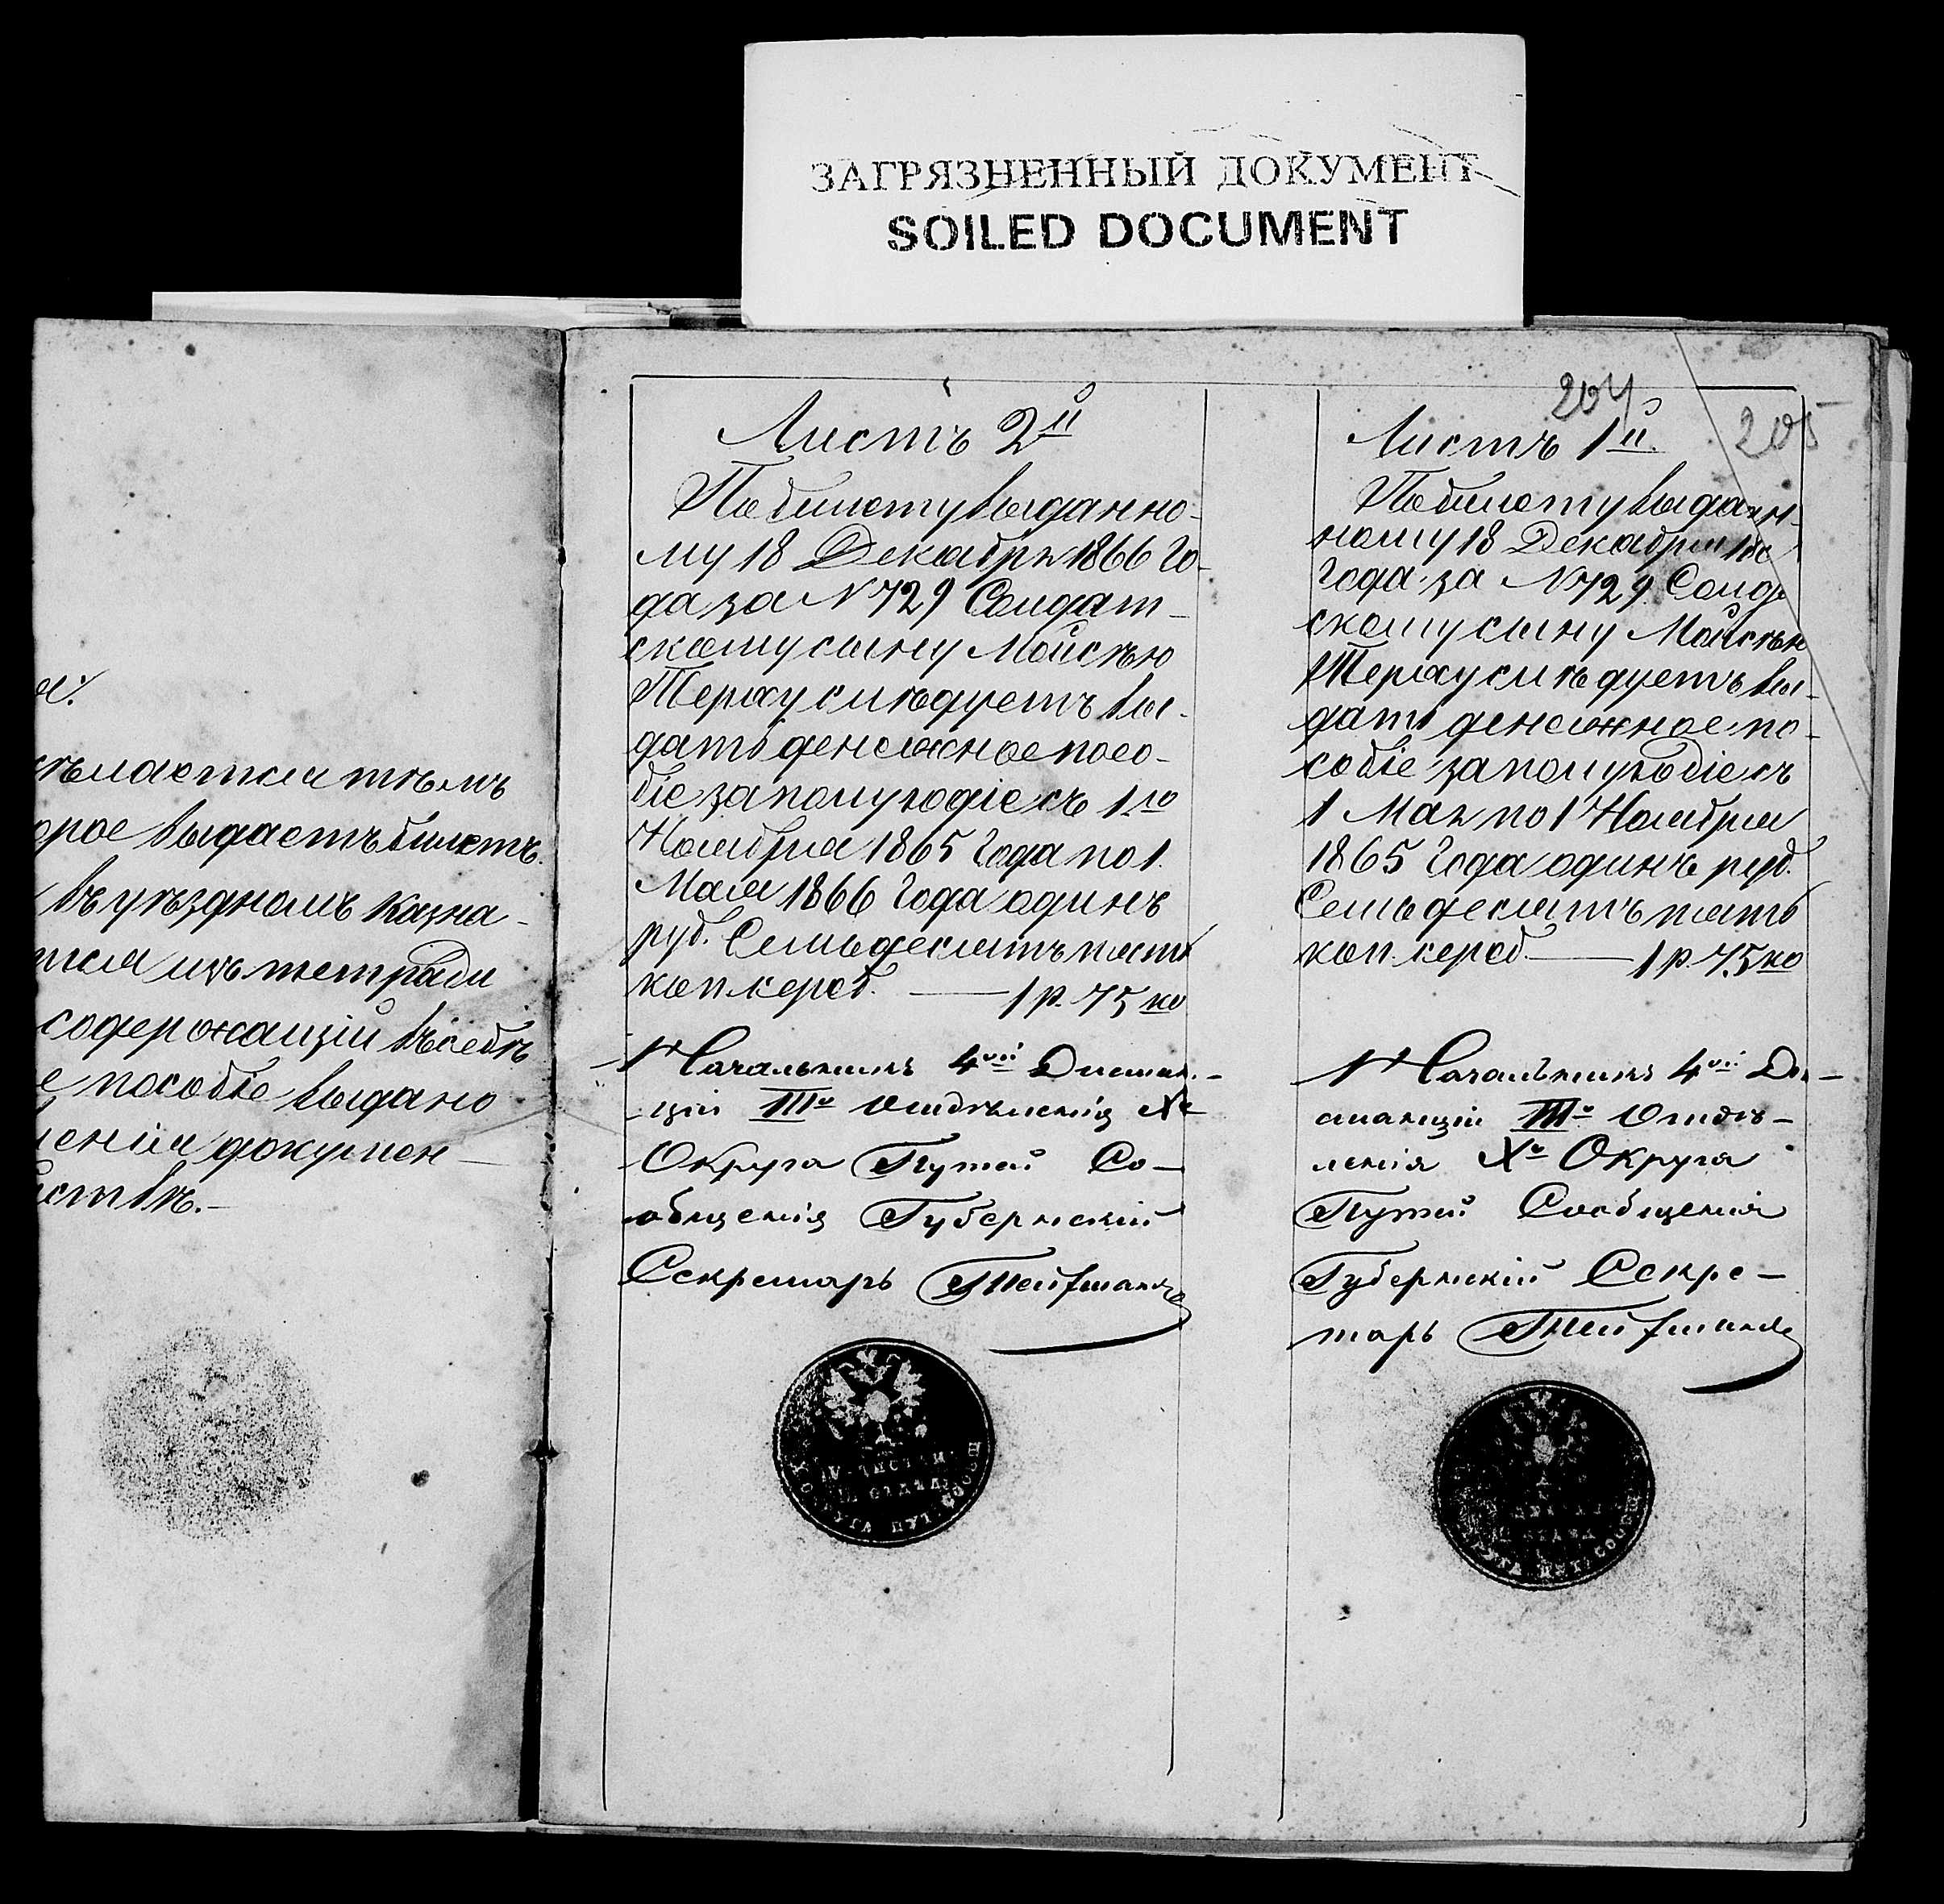 ЗАГРЯЗНЕННЫЙ ДОКУМЕНТ
SOILED DOCUMENT
ѣлается тѣмъ
орое выдаетъ билетъ.
въ уѣздномъ Казна-
тся изъ тетради
содержащій въ себѣ
е пособіе выдано
ленія докумен-
Листъ 2й
По билету выданно-
му 18 Декабря 1866 го-
да за N 729 Солдат-
скому сыну Мойсѣю
Терлу слѣдуетъ вы-
дать денежное посо-
біе за полугодіе съ 1го
Ноября 1865 года по 1.
Мая 1866 года одинъ
руб. Семьдесятъ пять
коп. сереб. — 1 р. 75 ко
Начальникъ 4ой Дистан-
ціи IIIо Отдѣленія Хо
Округа Путей Со-
общенія Губернскій
Секретарь
204
205
Листъ 1й
По билету выдан-
ному 18 Декабря
года за N 729 Солд
скому сыну Мойсѣю
Терлу слѣдуетъ вы-
дать денежное по-
собіе за полугодіе съ
1 Мая по 1 Ноября
1865 года одинъ руб.
Семьдесятъ пять
коп. сереб. — 1 р. 75 ко
Начальникъ 4ой Ди-
станціи IIIо Отдѣ-
ленія Хо Округа
Путей Сообщенія
Губернскій Секре-
тарь
IV ДИСТАН.
III ОТДѢЛ.
ОКРУГА ПУТ. СООБЩ